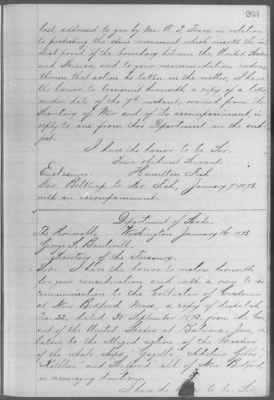 203
last, addressed to you by Mr. A. T. in relation
to protecting the stone monument which marks the in-
itial point of the boundary between the United States
and Mexico, and to your recommendation endorsed
thereon that action be taken in the matter, I have
the honor to transmit herewith a copy of a letter
under date of the 7th instant, received from the
Secretary of War and of its accompaniment in
reply to one from this Department on the sub-
ject.
I have the honor to be Sir,
Your obedient Servant,
Enclosures. Hamilton Fish
Mr. Belknap to Mr. Fish, January 7, 1873
with an accompaniment.
Department of State.
The Honorable Washington January 16, 1873
George S. Boutwell.
Secretary of the Treasury.
Sir: I have the honor to enclose herewith
for your consideration and with a view to its
communication to the Collector of Customs
at New Bedford Mass, a copy of despatch
No. 22, dated 30 September 1872, from the Con-
sul of the United States at Batavia, Java, re-
lation to the alleged action of the Masters
of the whale ships, "Gazelle" "Adeline Gibbs"
"Xantho" and all of New Bedford,
in encouraging desertions.
I have the to be Sir,